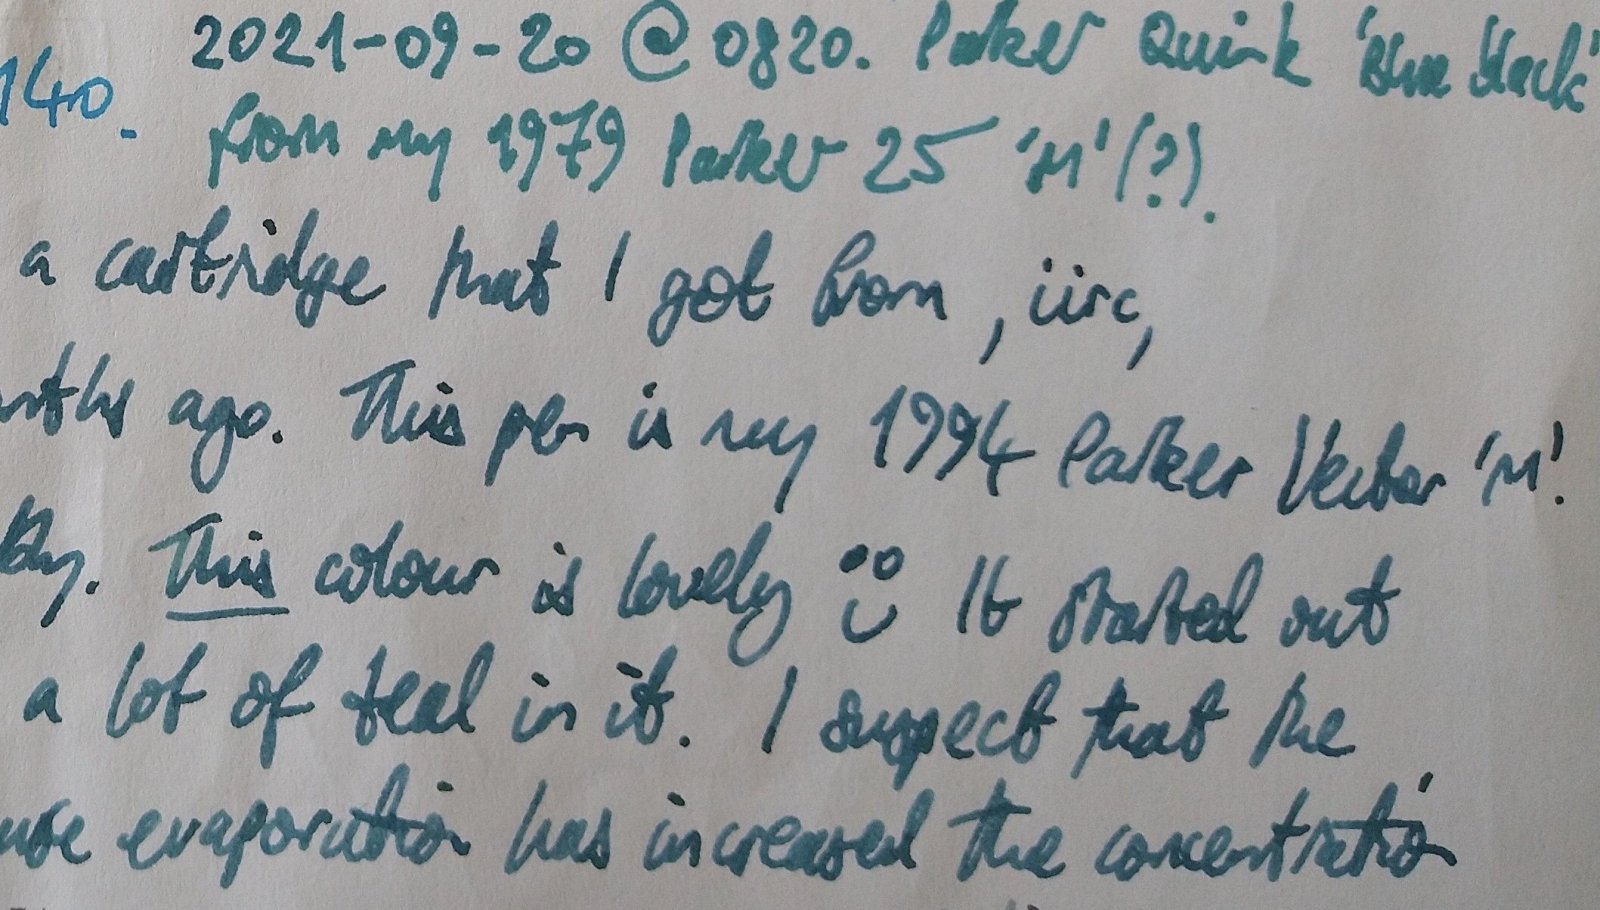 2021-09-20 @ 0820. Parker Quink 'Blue Black'
140.
from my 1979 Parker 25 'M' (?).
a cartridge that I got from, iirc,
ago. This pen is my 1994 Parker Vector 'M'.
This colour is lovely :) It started out
a lot of teal in it. I suspect that the
evaporation has increased the concentration